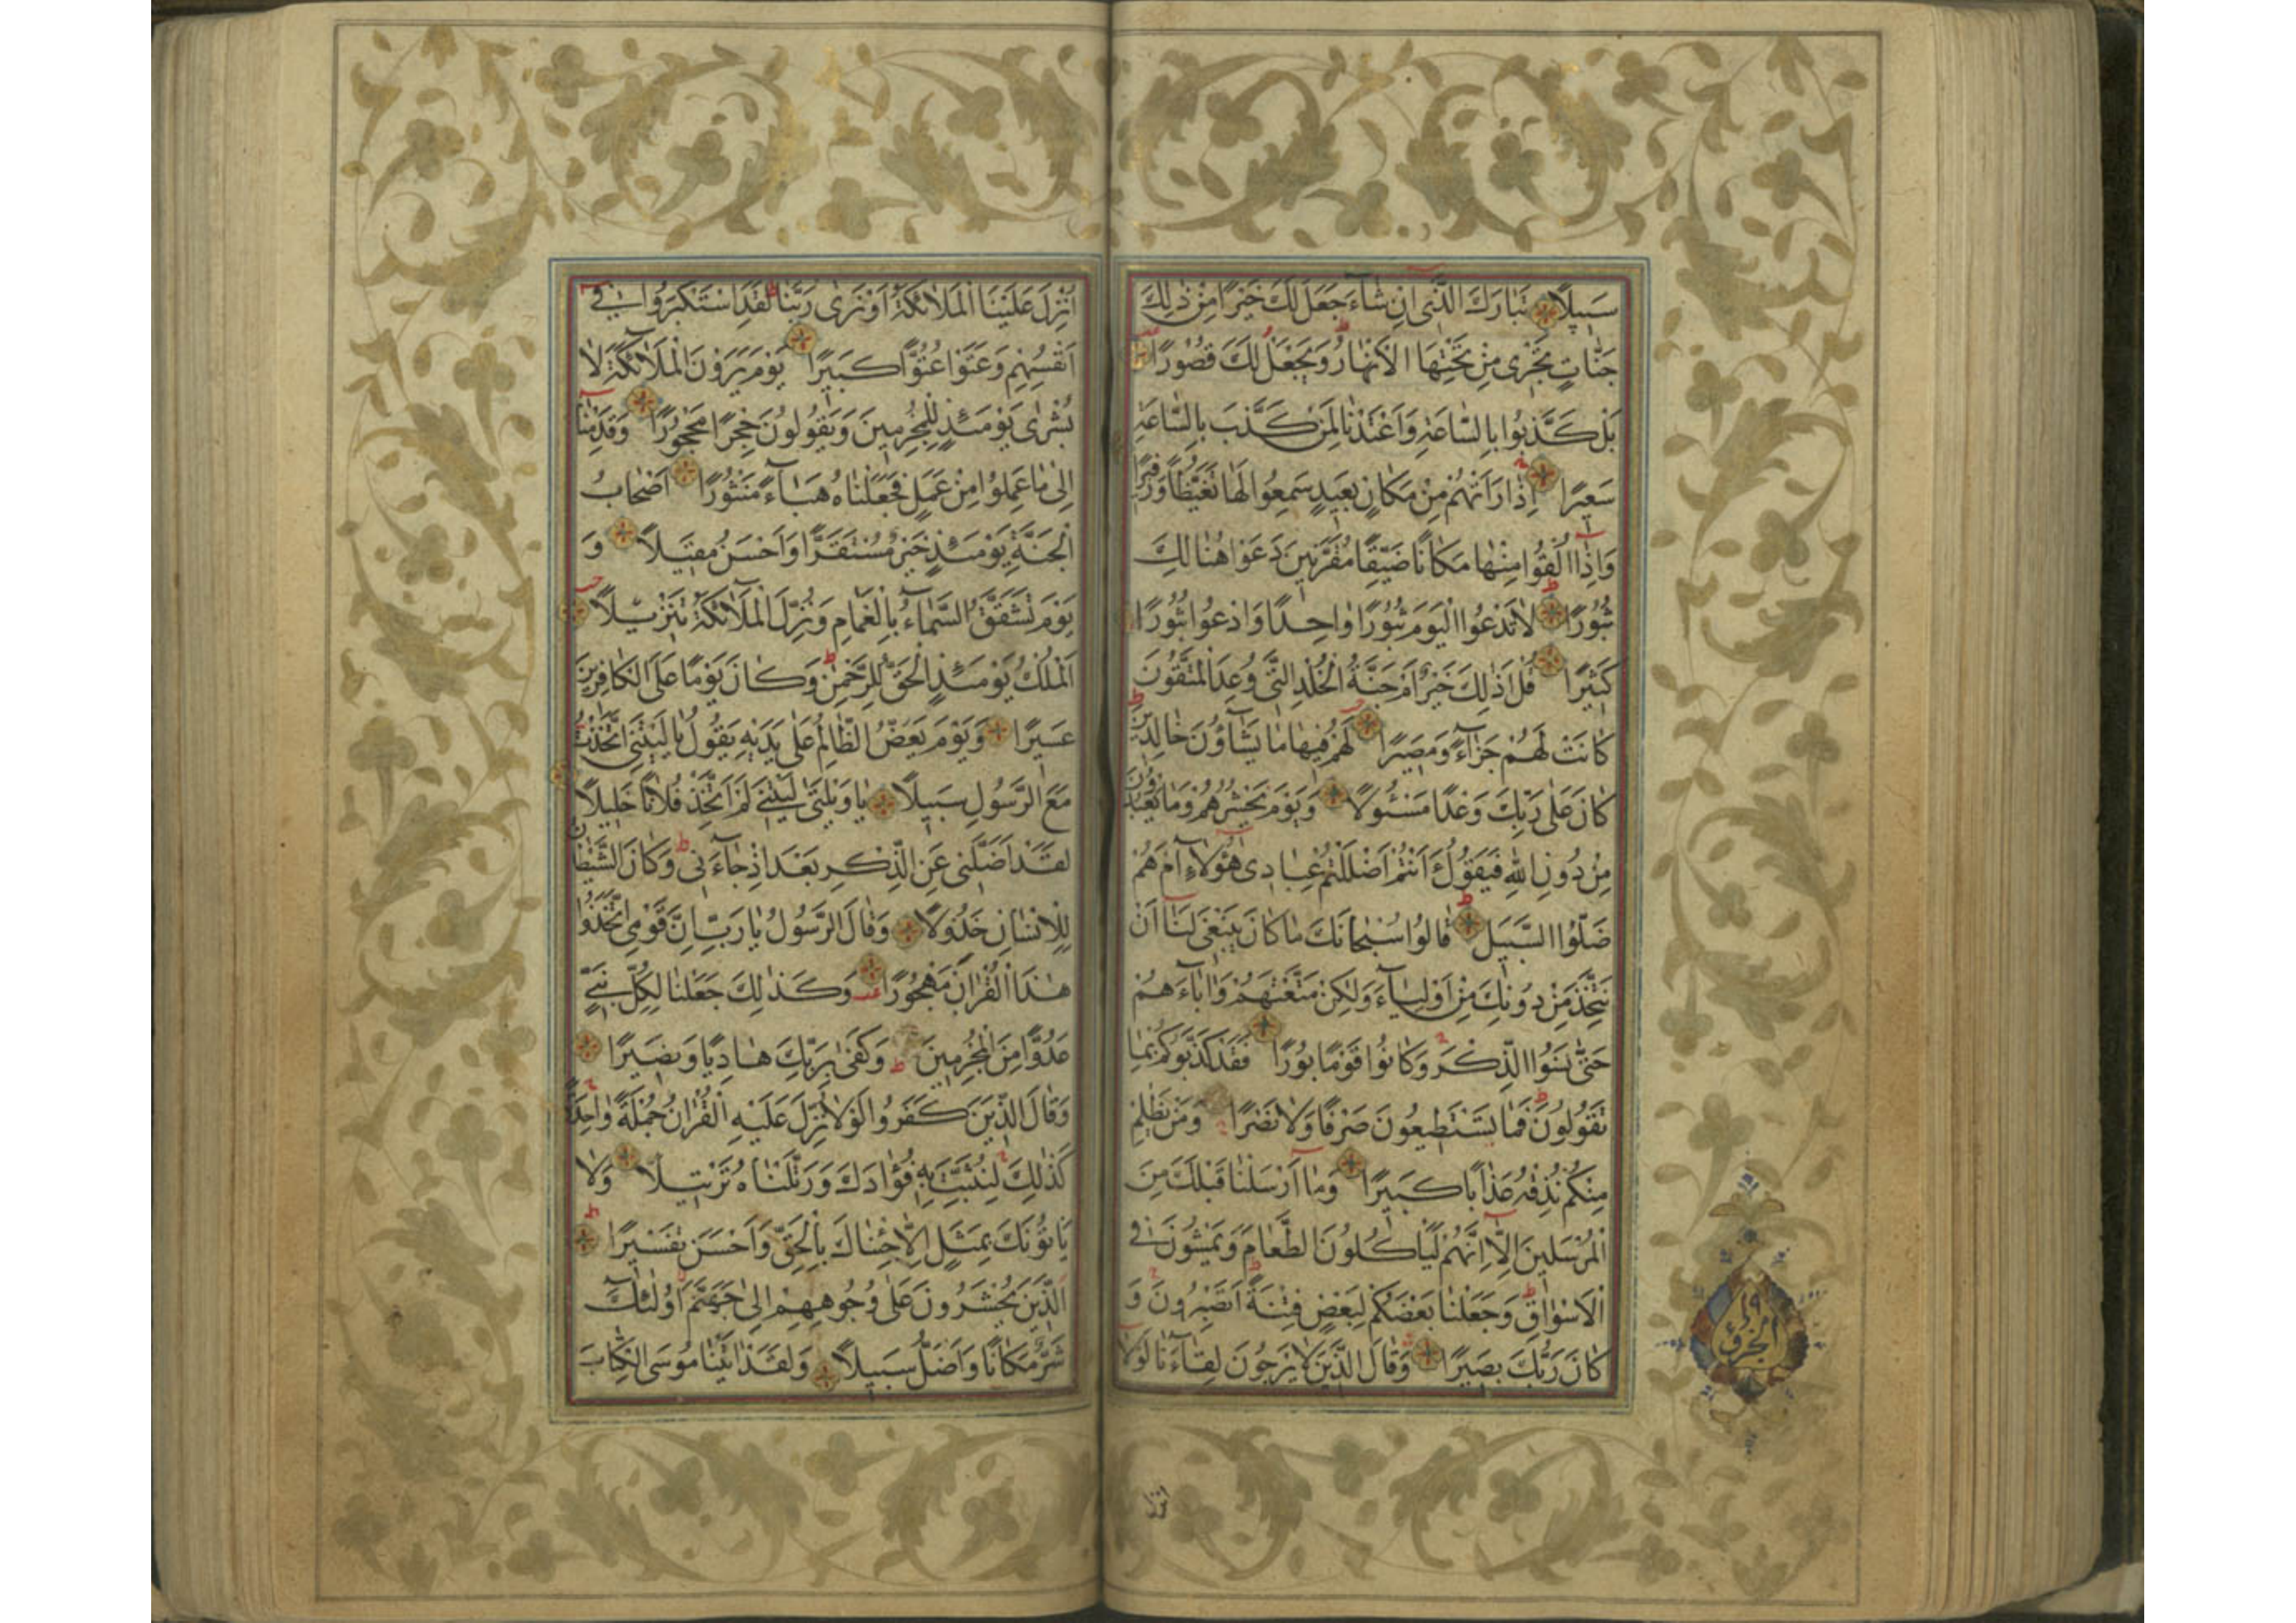 سَبيلًا تَبٰارَكَ الَّذى اِنْ شٰاءَ جَعَلَ لَكَ خَيْرًا مِنْ ذٰلِكَ
جَنّٰاتٍ تَجْرى مِنْ تَحْتِهَا الْاَنْهٰارُ وَيَجْعَلْ لَكَ قُصُورًا
بَلْ كَذَّبُوا بِالسّٰاعَةِ وَاَعْتَدْنٰا لِمَنْ كَذَّبَ بِالسّٰاعَةِ
سَعيرًا اِذٰا رَاَتْهُمْ مِنْ مَكٰانٍ بَعيدٍ سَمِعُوا لَهٰا تَغَيُّظًا وَزَفيرًا
وَاِذٰا اُلْقُوا مِنْهٰا مَكٰانًا ضَيِّقًا مُقَرَّنينَ دَعَوْا هُنٰالِكَ
ثُبُورًا لٰا تَدْعُوا الْيَوْمَ ثُبُورًا وٰاحِدًا وَادْعُوا ثُبُورًا
كَثيرًا قُلْ اَذٰلِكَ خَيْرٌ اَمْ جَنَّةُ الْخُلْدِ الَّتى وُعِدَ الْمُتَّقُونَ
كٰانَتْ لَهُمْ جَزٰاءً وَمَصيرًا لَهُمْ فيهٰا مٰا يَشٰاؤُنَ خٰالِدينَ
كٰانَ عَلٰى رَبِّكَ وَعْدًا مَسْئُولًا وَيَوْمَ يَحْشُرُهُمْ وَمٰا يَعْبُدُونَ
مِنْ دُونِ اللّٰهِ فَيَقُولُ ءَاَنْتُمْ اَضْلَلْتُمْ عِبٰادى هٰؤُلٰاءِ اَمْ هُمْ
ضَلُّوا السَّبيلَ قٰالُوا سُبْحٰانَكَ مٰا كٰانَ يَنْبَغى لَنٰا اَنْ
نَتَّخِذَ مِنْ دُونِكَ مِنْ اَوْلِيٰاءَ وَلٰكِنْ مَتَّعْتَهُمْ وَاٰبٰاءَهُمْ
حَتّٰى نَسُوا الذِّكْرَ وَكٰانُوا قَوْمًا بُورًا فَقَدْ كَذَّبُوكُمْ بِمٰا
تَقُولُونَ فَمٰا يَسْتَطيعُونَ صَرْفًا وَلٰا نَصْرًا وَمَنْ يَظْلِمْ
مِنْكُمْ نُذِقْهُ عَذٰابًا كَبيرًا وَمٰا اَرْسَلْنٰا قَبْلَكَ مِنَ
الْمُرْسَلينَ اِلّٰا اِنَّهُمْ لَيَاْكُلُونَ الطَّعٰامَ وَيَمْشُونَ فى
الْاَسْوٰاقِ وَجَعَلْنٰا بَعْضَكُمْ لِبَعْضٍ فِتْنَةً اَتَصْبِرُونَ وَ
كٰانَ رَبُّكَ بَصيرًا وَقٰالَ الَّذينَ لٰا يَرْجُونَ لِقٰاءَنٰا لَوْلٰا
انزل
اُنْزِلَ عَلَيْنَا الْمَلٰائِكَةُ اَوْ نَرٰى رَبَّنٰا لَقَدِ اسْتَكْبَرُوا فى
اَنْفُسِهِمْ وَعَتَوْا عُتُوًّا كَبيرًا يَوْمَ يَرَوْنَ الْمَلٰائِكَةَ لٰا
بُشْرٰى يَوْمَئِذٍ لِلْمُجْرِمينَ وَيَقُولُونَ حِجْرًا مَحْجُورًا وَقَدِمْنٰا
اِلٰى مٰا عَمِلُوا مِنْ عَمَلٍ فَجَعَلْنٰاهُ هَبٰاءً مَنْثُورًا اَصْحٰابُ
الْجَنَّةِ يَوْمَئِذٍ خَيْرٌ مُسْتَقَرًّا وَاَحْسَنُ مَقيلًا وَ
يَوْمَ تَشَقَّقُ السَّمٰاءُ بِالْغَمٰامِ وَنُزِّلَ الْمَلٰائِكَةُ تَنْزيلًا
اَلْمُلْكُ يَوْمَئِذٍ الْحَقُّ لِلرَّحْمٰنِ وَكٰانَ يَوْمًا عَلَى الْكٰافِرينَ
عَسيرًا وَيَوْمَ يَعَضُّ الظّٰالِمُ عَلٰى يَدَيْهِ يَقُولُ يٰا لَيْتَنِى اتَّخَذْتُ
مَعَ الرَّسُولِ سَبيلًا يٰا وَيْلَتٰى لَيْتَنى لَمْ اَتَّخِذْ فُلٰانًا خَليلًا
لَقَدْ اَضَلَّنى عَنِ الذِّكْرِ بَعْدَ اِذْ جٰاءَنى وَكٰانَ الشَّيْطٰانُ
لِلْاِنْسٰانِ خَذُولًا وَقٰالَ الرَّسُولُ يٰا رَبِّ اِنَّ قَوْمِى اتَّخَذُوا
هٰذَا الْقُرْاٰنَ مَهْجُورًا وَكَذٰلِكَ جَعَلْنٰا لِكُلِّ نَبِىٍّ
عَدُوًّا مِنَ الْمُجْرِمينَ وَكَفٰى بِرَبِّكَ هٰادِيًا وَنَصيرًا
وَقٰالَ الَّذينَ كَفَرُوا لَوْلٰا نُزِّلَ عَلَيْهِ الْقُرْاٰنُ جُمْلَةً وٰاحِدَةً
كَذٰلِكَ لِنُثَبِّتَ بِهِ فُؤٰادَكَ وَرَتَّلْنٰاهُ تَرْتيلًا وَلٰا
يَاْتُونَكَ بِمَثَلٍ اِلّٰا جِئْنٰاكَ بِالْحَقِّ وَاَحْسَنَ تَفْسيرًا
اَلَّذينَ يُحْشَرُونَ عَلٰى وُجُوهِهِمْ اِلٰى جَهَنَّمَ اُولٰئِكَ
شَرٌّ مَكٰانًا وَاَضَلُّ سَبيلًا وَلَقَدْ اٰتَيْنٰا مُوسَى الْكِتٰابَ